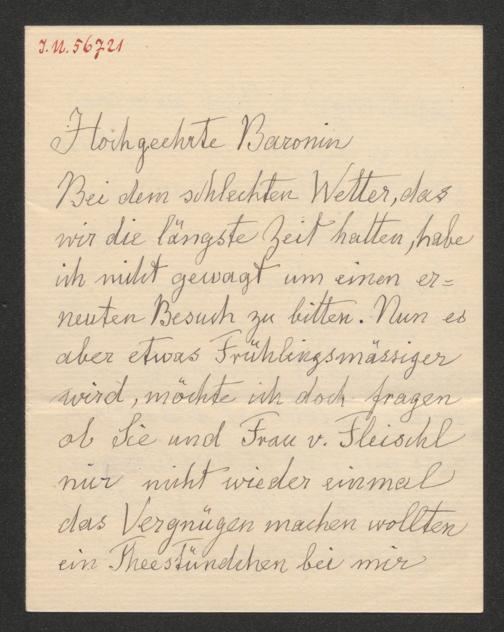 J.N. 56721
Hochgeehrte Baronin
Bei dem schlechten Wetter, das
wir die längste Zeit hatten, habe
ich nicht gewagt um einen er=
neuten Besuch zu bitten. Nun es
aber etwas Frühlingsmässiger
wird, möchte ich doch fragen
ob Sie und Frau v. Fleischl
mir nicht wieder einmal
das Vergnügen machen wollten
ein Theestündchen bei mir